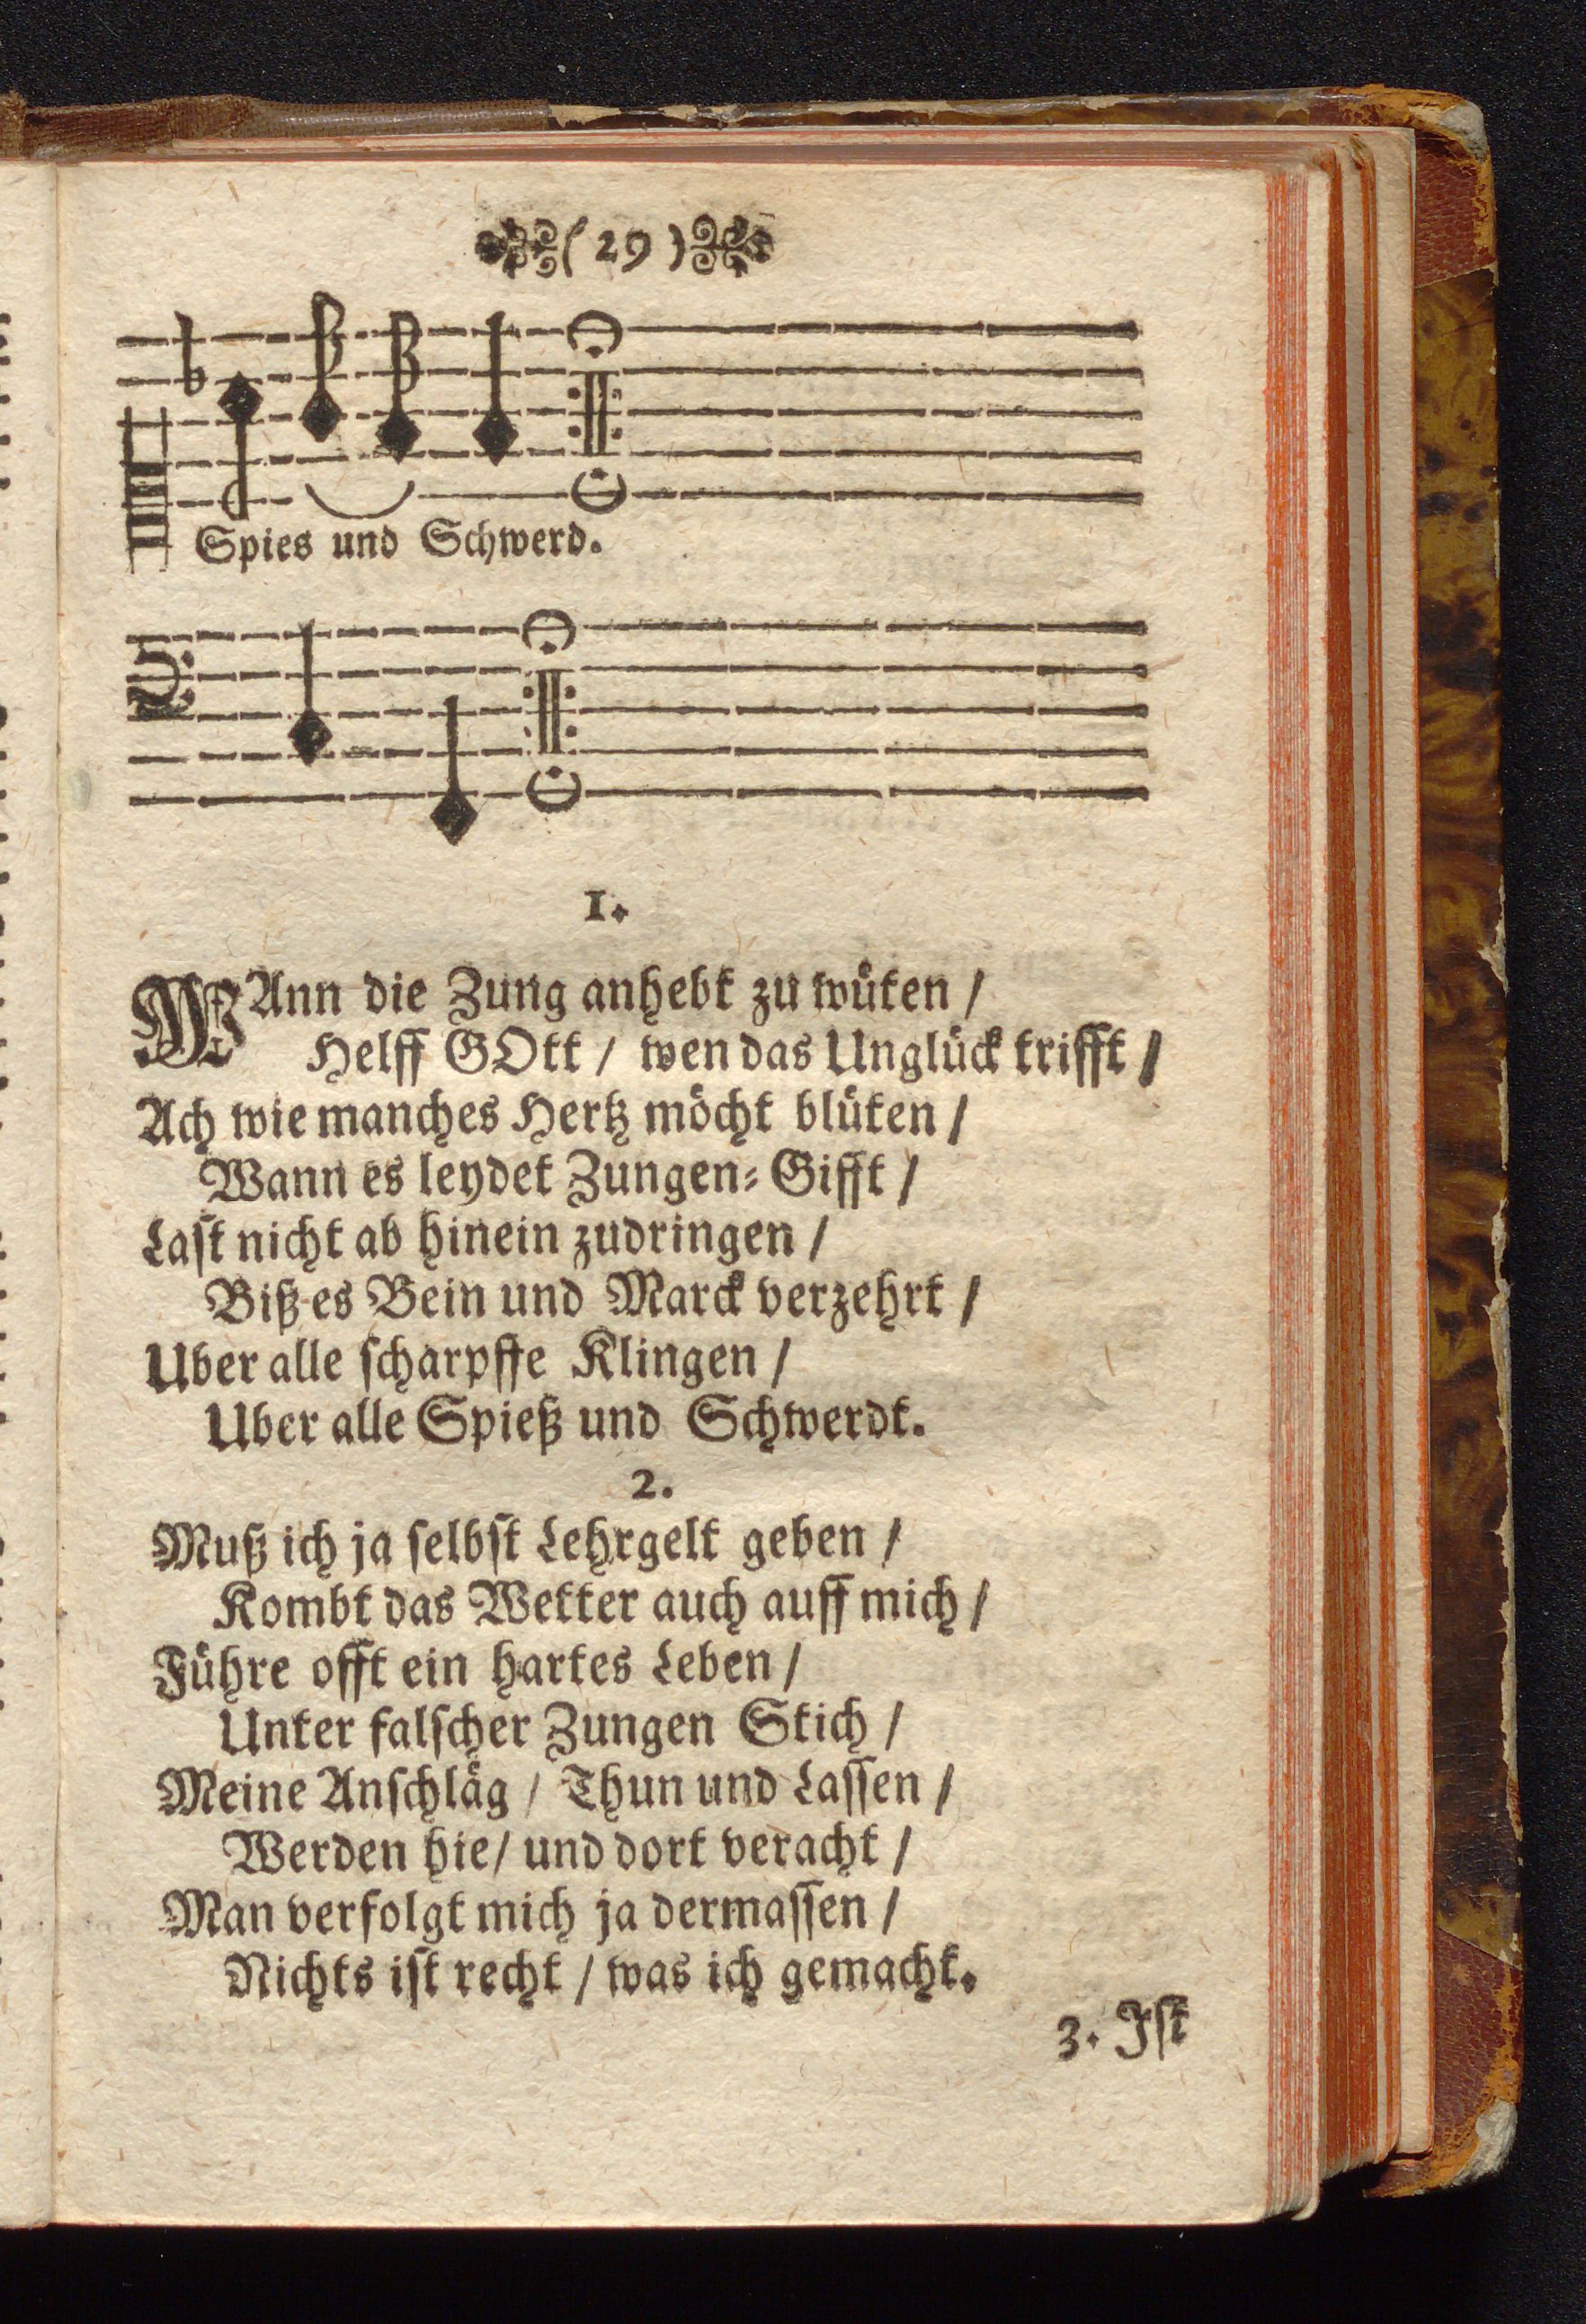 ( 29 )
Spies und Schwerd.
1.
WAnn die Zung anhebt zu wuͤten /
Helff GOtt / wen das Ungluͤck trifft /
Ach wie manches Hertz moͤcht bluͤten /
Wann es leydet Zungen⸗Gifft /
Laſt nicht ab hinein zudringen /
Biß es Bein und Marck verzehrt /
Uber alle ſcharpffe Klingen /
Uber alle Spieß und Schwerdt.
2.
Muß ich ja ſelbſt Lehrgelt geben /
Kombt das Wetter auch auff mich /
Fuͤhre offt ein hartes Leben /
Unter falſcher Zungen Stich /
Meine Anſchlaͤg / Thun und Laſſen /
Werden hie / und dort veracht /
Man verfolgt mich ja dermaſſen /
Nichts iſt recht / was ich gemacht.
3. Iſt